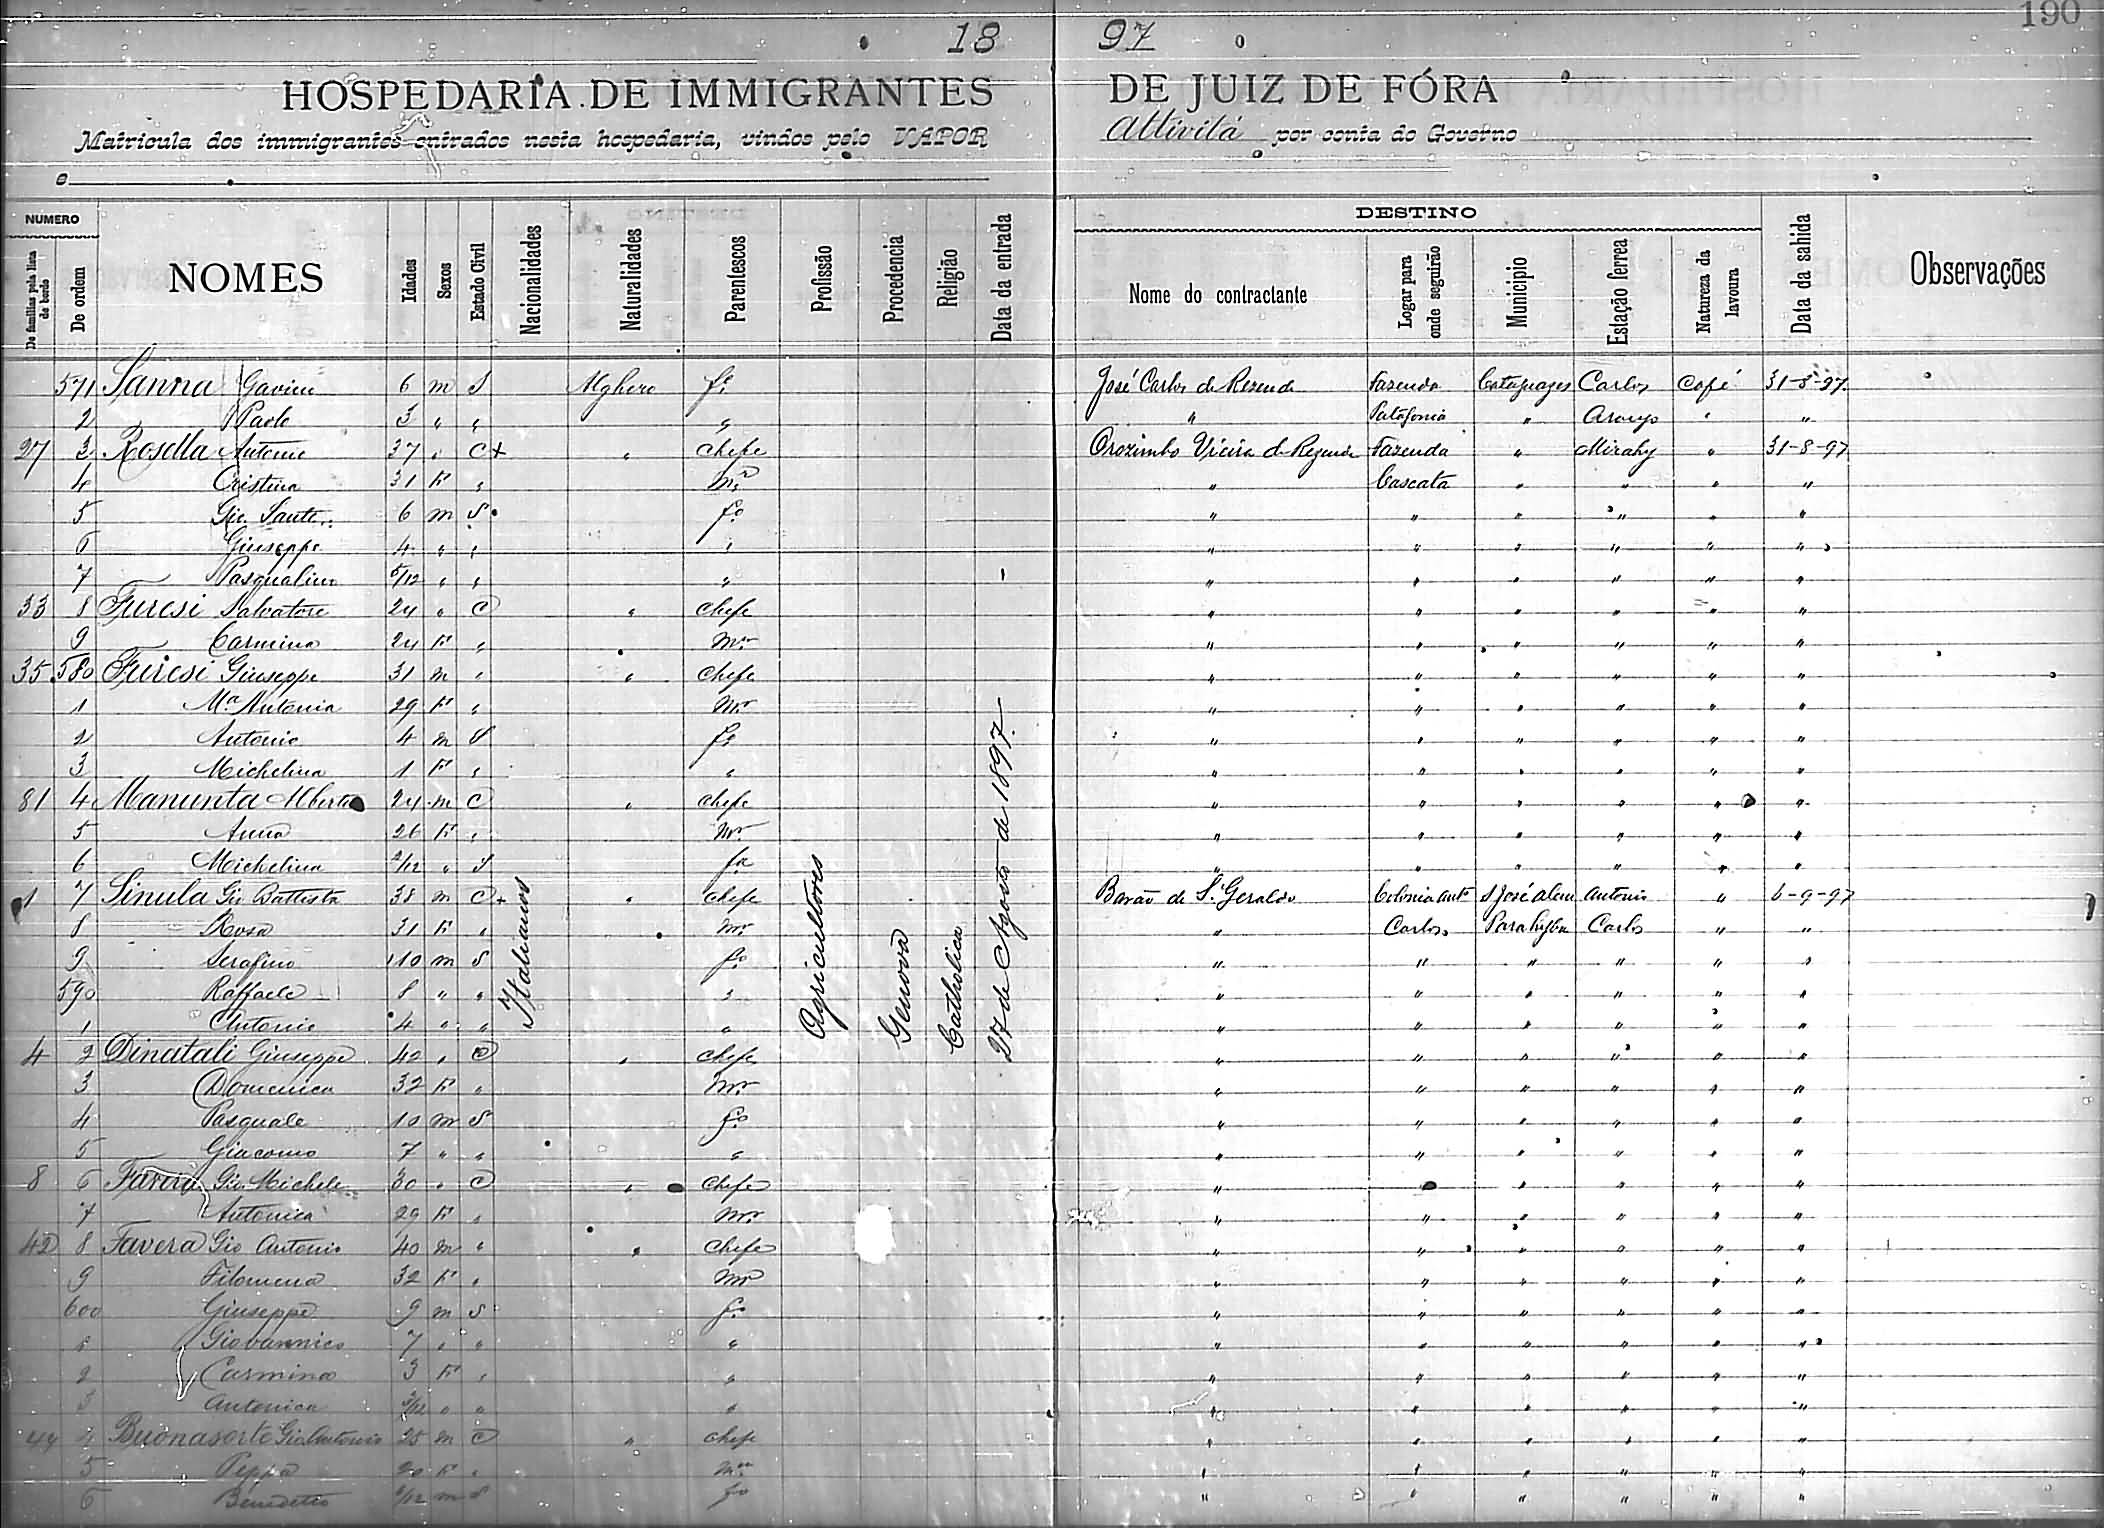 190
18 97
HOSPEDARIA DE IMMIGRANTES DE JUIZ DE FÓRA
Matricula dos immigrantes entrados nesta hospedaria, vindos pelo VAPOR Attivitá por conta do Governo
NUMERO DESTINO
De familias pela lista de bordo De ordem NOMES Idades Sexos Estado Civil Nacionalidades Naturalidades Parentescos Profissão Procedencia Religião Data da entrada Nome do contractante Logar para onde seguirão Municipio Estação ferrea Natureza da lavoura Data da sahida Observações
571 Sanna Gavino 6 m S Alghero fo José Carlos de Rezende Fazenda Cataguazes Carlos Café 31-8-97
2 Paolo 3 " " " " Patagonia " Araujo " "
27 3 Rosella Antonio 37 " C+ " Chefe Orozimbo Vieira de Rezende Fazenda " Mirahy " 31-8-97
4 Cristina 31 F " Mr " Cascata " " " "
5 Gio. Sante 6 m S fo " " " " " "
6 Giuseppe 4 " " " " " " " " "
7 Pasqualino 5/12 " " " " " " " " "
33 8 Furesi Salvatore 24 " C " Chefe " " " " " "
9 Carmina 24 F " Mr " " " " " "
35 580 Furesi Giuseppe 31 m " " Chefe " " " " " "
1 Ma Antonia 29 F " Mr " " " " " "
2 Antonio 4 m S fo " " " " " "
3 Michelina 1 F " " " " " " " "
81 4 Manunta Alberto 24 m C " Chefe " " " " " "
5 Anna 26 F " Mr " " " " " "
6 Michelina 2/12 " S fa " " " " " "
1 7 Sinula Gio Battista 38 m C+ " Chefe Barão de S. Geraldo Colonia Antº S José Alem Antonio " 6-9-97
8 Rosa 31 F " Mr " Carlos Parahyba Carlos " "
9 Serafino 10 m S fo " " " " " "
590 Raffaele 8 " " " " " " " " "
1 Antonio 4 " " " " " " " " "
4 2 Dinatali Giuseppe 42 " C " Chefe " " " " " "
3 Domenica 32 F " Mr " " " " " "
4 Pasquale 10 m S fo " " " " " "
5 Giacomo 7 " " " " " " " " "
8 6 Favera Gio. Michele 30 " C " Chefe " " " " " "
7 Antonica 29 F " Mr " " " " " "
42 8 Favera Gio Antonio 40 m " " Chefe " " " " " "
9 Filomena 32 F " Mr " " " " " "
600 Giuseppe 9 m S fo " " " " " "
1 Giovannico 7 " " " " " " " " "
2 Carmina 3 F " " " " " " " "
3 Antonica 3/12 " " " " " " " " "
44 4 Buonasorte Gio Antonio 25 m C " Chefe " " " " " "
5 Peppa 20 F " Mr " " " " " "
6 Benedetto m S fo " " " " " "
Italianos
Agricultores
Genova
Catholica
27 de Agosto de 1897